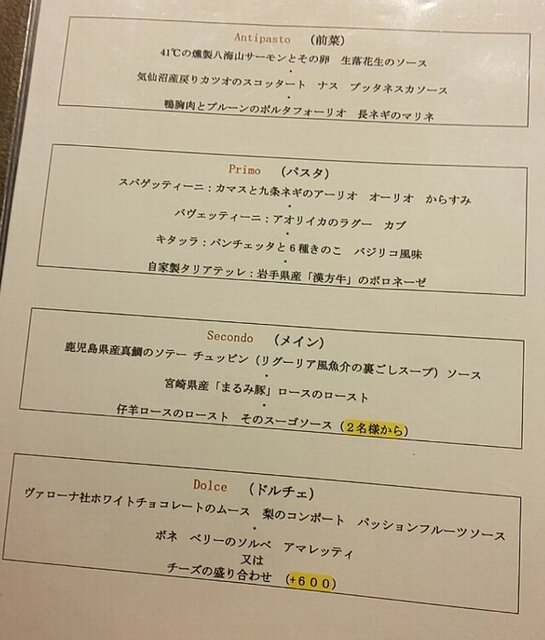 Antipasto （前菜）
41℃の燻製八海山サーモンとその卵　生落花生のソース
・
気仙沼産戻りカツオのスコッタート　ナス　プッタネスカソース
・
鴨胸肉とプルーンのポルタフォーリオ　長ネギのマリネ
Primo （パスタ）
スパゲッティーニ：カマスと九条ネギのアーリオ　オーリオ　からすみ
・
バヴェッティーニ：アオリイカのラグー　カブ
・
キタッラ：パンチェッタと６種きのこ　バジリコ風味
・
自家製タリアテッレ：岩手県産「漢方牛」のボロネーゼ
Secondo （メイン）
鹿児島県産真鯛のソテー チュッピン（リグーリア風魚介の裏ごしスープ）ソース
・
宮崎県産「まるみ豚」ロースのロースト
・
仔羊ロースのロースト　そのスーゴソース（２名様から）
Dolce （ドルチェ）
ヴァローナ社ホワイトチョコレートのムース　梨のコンポート　パッションフルーツソース
・
ボネ　ベリーのソルベ　アマレッティ
又は
チーズの盛り合わせ　（+６００）